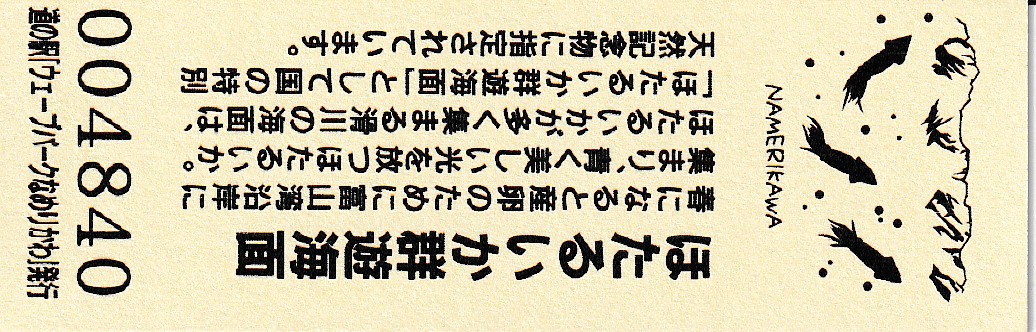 ほたるいか群遊海面
春になると産卵のために富山湾沿岸に
集まり、青く美しい光を放つほたるいか。
ほたるいかが多く集まる滑川の海面は、
「ほたるいか群遊海面」として国の特別
天然記念物に指定されています。
NAMERIKAWA
004840
道の駅「ウェーブパークなめりかわ」発行